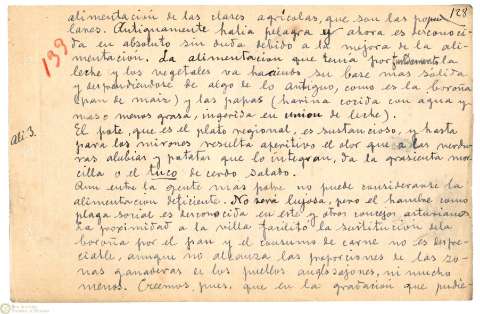 128
alimentación de las clases agrícolas, que son las popu-
lares. Antiguamente había pelagra y ahora es desconoci-
da en absoluto sin duda debido a la mejora de la ali-
139
mentación. La alimentación que tenía por fundamento la
leche y los vegetales va haciendo su base mas sólida
y despendiendose de algo de lo antiguo, como es la boroña
(pan de maiz) y las papas (harina cocida con agua y
mas o menos grasa, ingerida en union de leche).
Ali 3.
El pote, que es el plato regional, es sustancioso, y hasta
para los mirones resulta aperitivo el olor que a las verdu-
ras alubias y patatas que lo integran, da la grasienta mor-
cilla o el tuco de cerdo salado.
Aun entre la gente mas pobre no puede considerarse la
alimentacion deficiente. No será lujosa, pero el hambre como
plaga social es desconocida en este y otros concejos asturianos
La proximidad a la villa facilitó la sustitución de la
boroña por el pan y el consumo de carne no es despre-
ciable, aunque no alcanza las proporciones de las zo-
nas ganaderas de los pueblos anglosajones, ni mucho
menos. Creemos, pues, que en la gradacion que pudie-